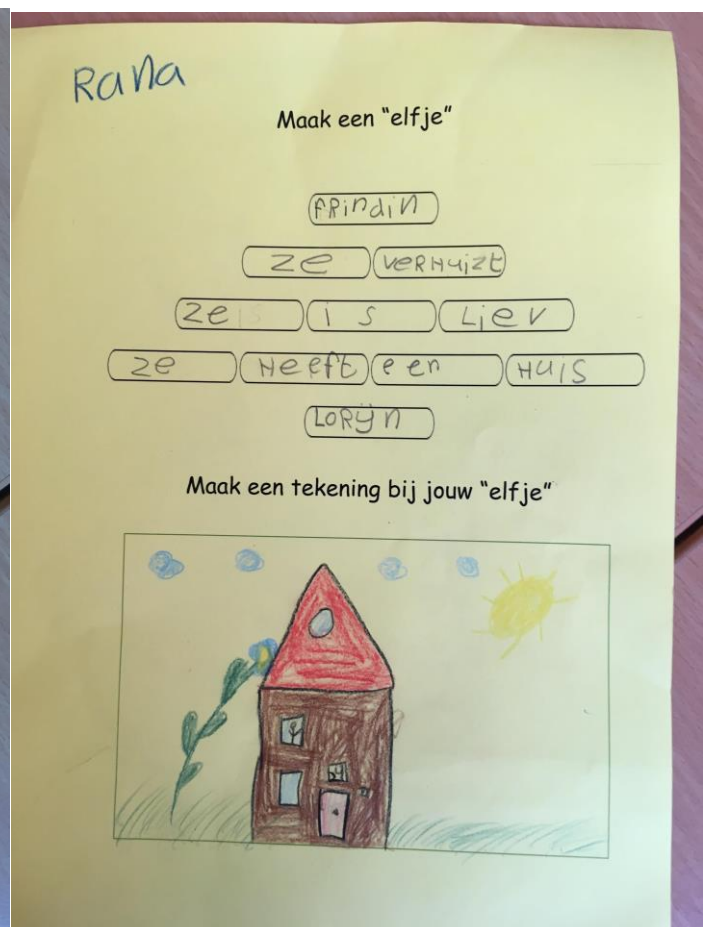 Rana
Maak een “elfje”
FRindin
ze VeRHuizt
ze is Liev
ze Heeft een Huis
LORijn
Maak een tekening bij jouw “elfje”